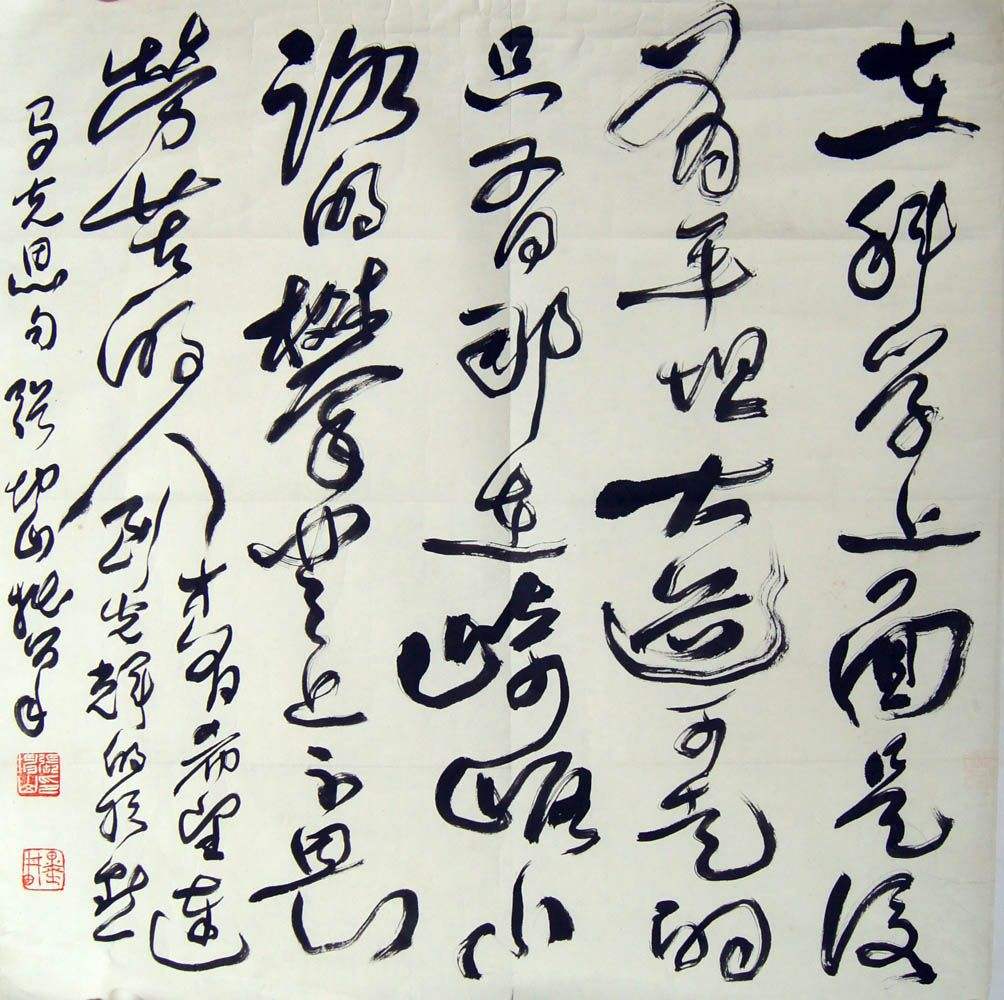 在科学上面是没
有平坦大道可走的
只有那在崎岖小
路的攀登上不畏
勞苦的人
才有希望達
到光輝的顶點
马克思句 张山